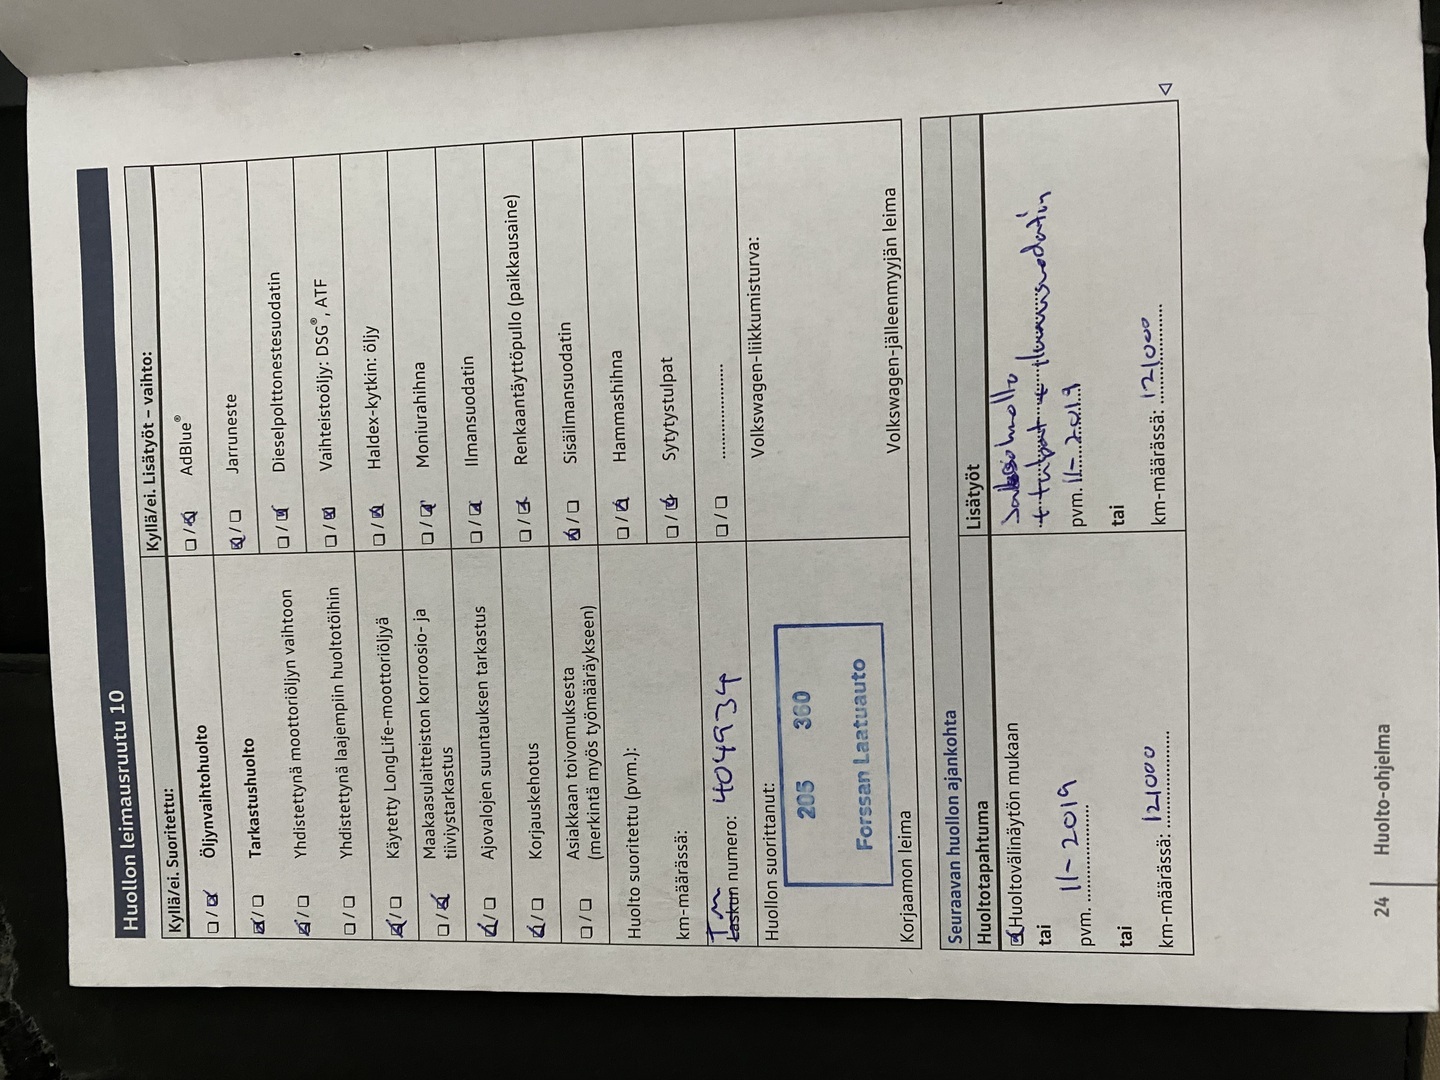 Huollon leimausruutu 10
Kyllä/ei. Suoritettu:
Öljynvaihtohuolto
Tarkastushuolto
Yhdistettynä moottoriöljyn vaihtoon
Yhdistettynä laajempiin huoltotöihin
Käytetty LongLife-moottoriöljyä
Maakaasulaitteiston korroosio- ja
tiiviystarkastus
Ajovalojen suuntauksen tarkastus
Korjauskehotus
Asiakkaan toivomuksesta
(merkintä myös työmääräykseen)
Huolto suoritettu (pvm.):
km-määrässä:
TM
Laskun numero: 4049934
Huollon suorittanut:
205 360
Forssan Laatuauto
Korjaamon leima
Kyllä/ei. Lisätyöt – vaihto:
AdBlue®
Jarruneste
Dieselpolttonestesuodatin
Vaihteistoöljy: DSG®, ATF
Haldex-kytkin: öljy
Moniurahihna
Ilmansuodatin
Renkaantäyttöpullo (paikkausaine)
Sisäilmansuodatin
Hammashihna
Sytytystulpat
Volkswagen-liikkumisturva:
Volkswagen-jälleenmyyjän leima
Seuraavan huollon ajankohta
Huoltotapahtuma
Huoltovälinäytön mukaan
tai
pvm. 11-2019
tai
km-määrässä: 121000
Lisätyöt
+ tulpat + ilmansuodatin
pvm. 11-2019
tai
km-määrässä: 121000
24 Huolto-ohjelma